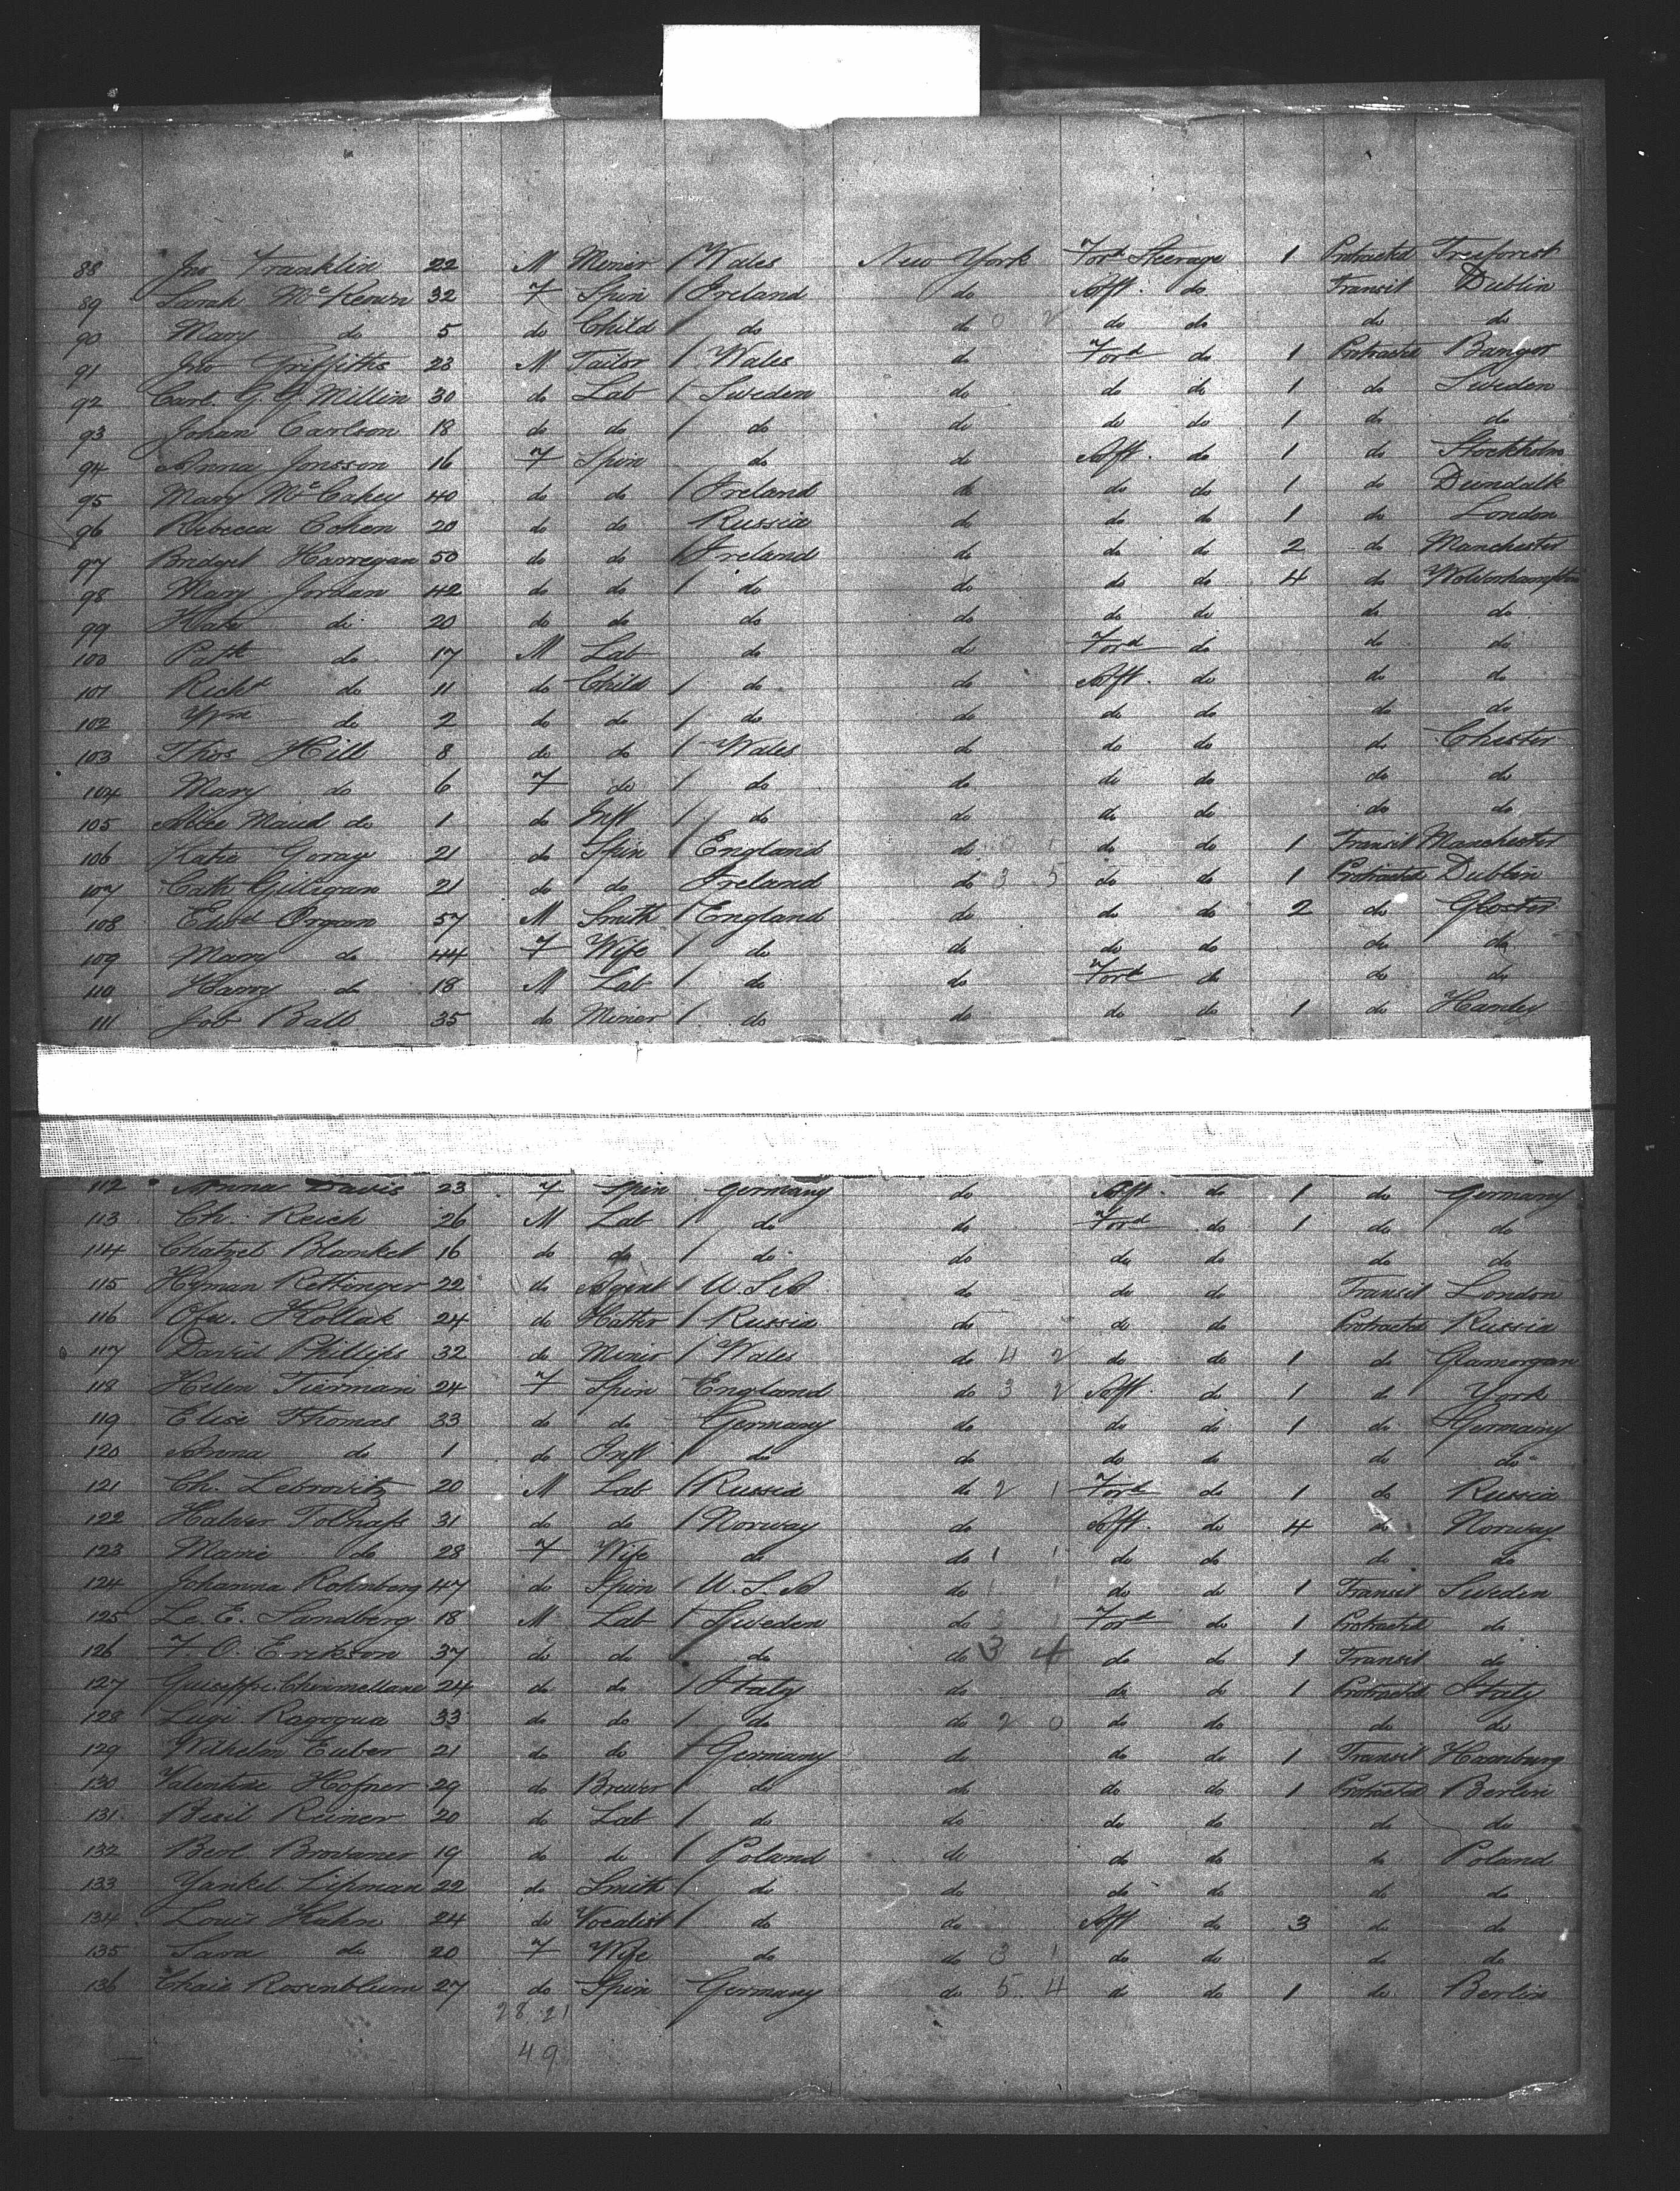 88 Jno Franklin 22 M Miner / Wales New York Ford Steerage 1 Protracted Treeforest
89 Sarah McKeown 32 F Spin / Ireland do Aft. do Transit Dublin
90 Mary do 5 do Child / do do 0 2 do do do do
91 Jno Griffiths 23 M Tailor / Wales do Ford do 1 Protracted Bangor
92 Carl. G. G. Millin 30 do Lab / Sweden do do do 1 do Sweden
93 Johan Carlson 18 do do / do do do do 1 do do
94 Anna Jonsson 16 F Spin do do Aft. do 1 do Stockholm
95 Mary McCahey 40 do do / Ireland do do do 1 do Dundalk
96 Rebecca Cohen 20 do do Russia do do do 1 do London
97 Bridget Harregan 50 do do / Ireland do do do 2 do Manchester
98 Mary Jordan 42 do do / do do do do 4 do Wolverhampton
99 Kate do 20 do do do do do do do do
100 Patk do 17 M Lab do do Ford do do do
101 Richd do 11 do Child / do do Aft. do do do
102 Wm do 2 do do / do do do do do do
103 Thos Hill 8 do do / Wales do do do do Chester
104 Mary do 6 F do / do do do do do do
105 Alice Maud do 1 do Inft / do do do do do do
106 Katie Goray 21 do Spin / England do 0 1 do do 1 Transit Manchester
107 Cath Gilligan 21 do do Ireland do 3 5 do do 1 Protracted Dublin
108 Edwd Organ 57 M Smith / England do do do 2 do Gloster
109 Mary do 44 F Wife / do do do do do do
110 Harry do 18 M Lab / do do Ford do do do
111 Job Ball 35 do Miner / do do do do 1 do Hanley
112 Anna Davis 23 F Spin Germany do Aft. do 1 do Germany
113 Ch. Reich 26 M Lab / do do Ford do 1 do do
114 Chatzel Blanket 16 do do / do do do do do do
115 Hyman Rettinger 22 do Agent / U.S.A do do do Transit London
116 Kollak 24 do Hatter / Russia do do do Protracted Russia
117 David Phillips 32 do Miner / Wales do 4 2 do do 1 do Glamorgan
118 Helen Tierman 24 F Spin England do 3 2 Aft. do 1 do York
119 Elise Thomas 33 do do Germany do do do 1 do Germany
120 Anna do 1 do Inft / do do do do do do
121 Ch. Lebrovitz 20 M Lab / Russia do 2 1 Ford do 1 do Russia
122 Halvor 31 do do / Norway do Aft. do 4 do Norway
123 Marie do 28 F Wife do do 1 1 do do do do
124 Johanna Rohnberg 47 do Spin / U.S.A do 1 1 do do 1 Transit Sweden
125 Le. E. Sandberg 18 M Lab / Sweden do Ford do 1 Protracted do
126 F. O. Erikson 37 do do / do do 3 4 do do 1 Transit do
127 Guiseppe Chiumellane 24 do do / Italy do do do 1 Protracted Italy
128 Lugi Ragogua 33 do do / do do 2 0 do do do do
129 Wilhelm Euber 21 do do / Germany do do do 1 Transit Hamburg
130 Valentine Hofner 29 do Brewer / do do do do 1 Protracted Berlin
131 Besil Reiner 20 do Lab / do do do do do do
132 Berl Brovaner 19 do do / Poland do do do do Poland
133 Yankel Lipman 22 do Smith / do do do do do do
134 Louis Kuhn 24 do Vocalist / do do Aft do 3 do do
135 Sara do 20 F Wife do do 3 1 do do do do
136 Chaie Rosenblum 27 do Spin Germany do 5 4 do do 1 do Berlin
28 21
49